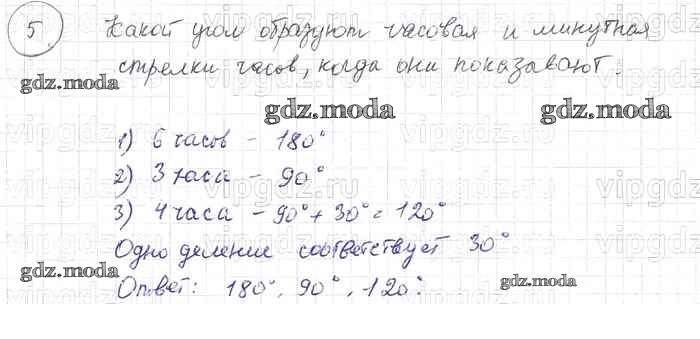 5 Какой угол образуют часовая и минутная
стрелки часов, когда они показывают:
gdz.moda
gdz.moda gdz.moda
1) 6 часов - 180°
2) 3 часа - 90°
3) 4 часа - 90° + 30° = 120°
gdz.moda
Одно деление соответствует 30°
gdz.moda gdz.moda
Ответ: 180°, 90°, 120°.